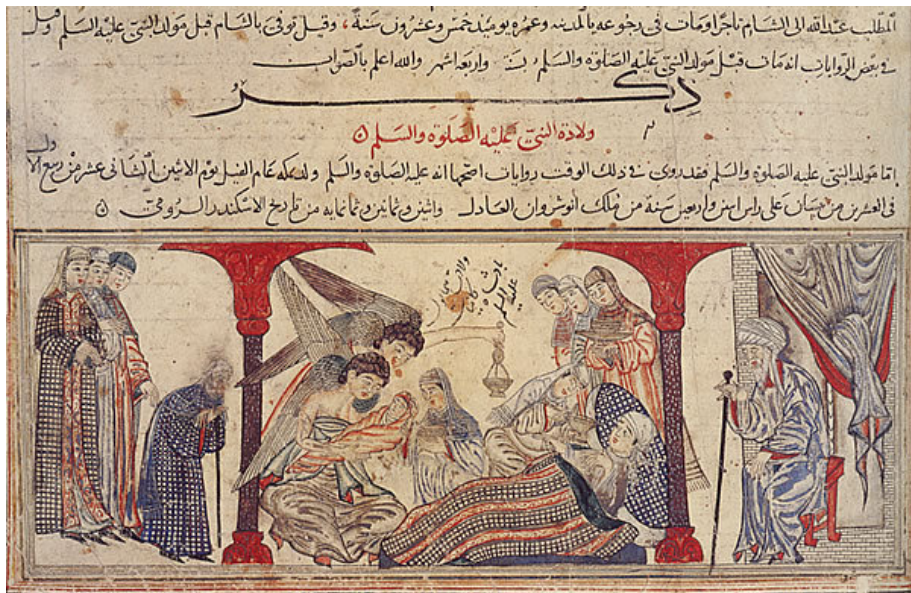 المطلب عبد الله الى الشام تاجرا ومات في رجوعه بالمدينه وعمره يوميذ خمس وعشرون سنة، وقيل توفي بالشام قبل مولد النبي عليه السلم وقيل
في بعض الروايات انه مات قبل مولد النبي عليه الصلوة والسلم واربعة اشهر والله اعلم بالصواب
ذكر
ولادة النبي عليه الصلوة والسلم
اما مولد النبي عليه الصلوة والسلم فقد روى في ذلك الوقت روايات اصحها انه عليه الصلوة والسلم ولد بمكه عام الفيل يوم الاثنين الثاني عشر من ربيع الاول
في العشرين من نيسان على راس اثنين واربعين سنة من ملك انوشروان العادل واثنين وثمانين وثمانمايه من تاريخ الاسكندر الرومي
ولادت
عليه السلم